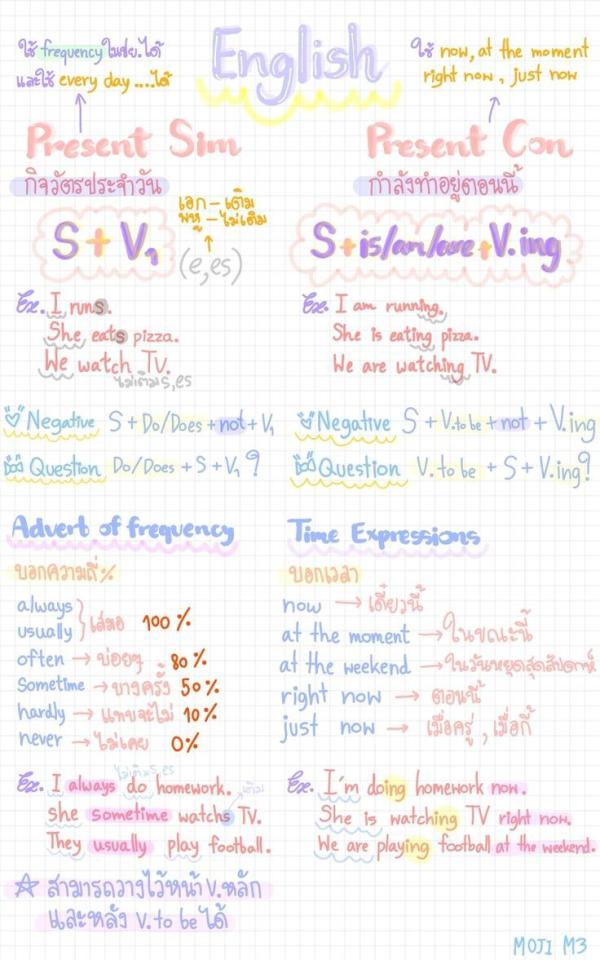 English
ใช้ frequency ในปย.ได้
และใช้ every day ....ได้
ใช้ now, at the moment
right now, just now
Present Sim
กิจวัตรประจำวัน
S + V1
เอก - เติม
พหู - ไม่เติม
(e,es)
Ex. I runs.
She eats pizza.
We watch TV.
ไม่เติม s,es
Present Con
กำลังทำอยู่ตอนนี้
S + is/am/are + V.ing
Ex. I am running.
She is eating pizza.
We are watching TV.
Negative S + Do/Does + not + V1
Question Do/Does + S + V1 ?
Negative S + V.to be + not + V.ing
Question V.to be + S + V.ing?
Advert of frequency
บอกความถี่%
always
usually } เสมอ 100%
often → บ่อยๆ 80%
Sometime → บางครั้ง 50%
hardly → แทบจะไม่ 10%
never → ไม่เคย 0%
ไม่เติม s,es
Ex. I always do homework.
เติม
She sometime watchs TV.
They usually play football.
☆ สามารถวางไว้หน้า V.หลัก
และหลัง V. to be ได้
Time Expressions
บอกเวลา
now → เดี๋ยวนี้
at the moment → ในขณะนี้
at the weekend → ในวันหยุดสุดสัปดาห์
right now → ตอนนี้
just now → เมื่อครู่, เมื่อกี้
Ex. I'm doing homework now.
She is watching TV right now.
We are playing football at the weekend.
MOJI M3